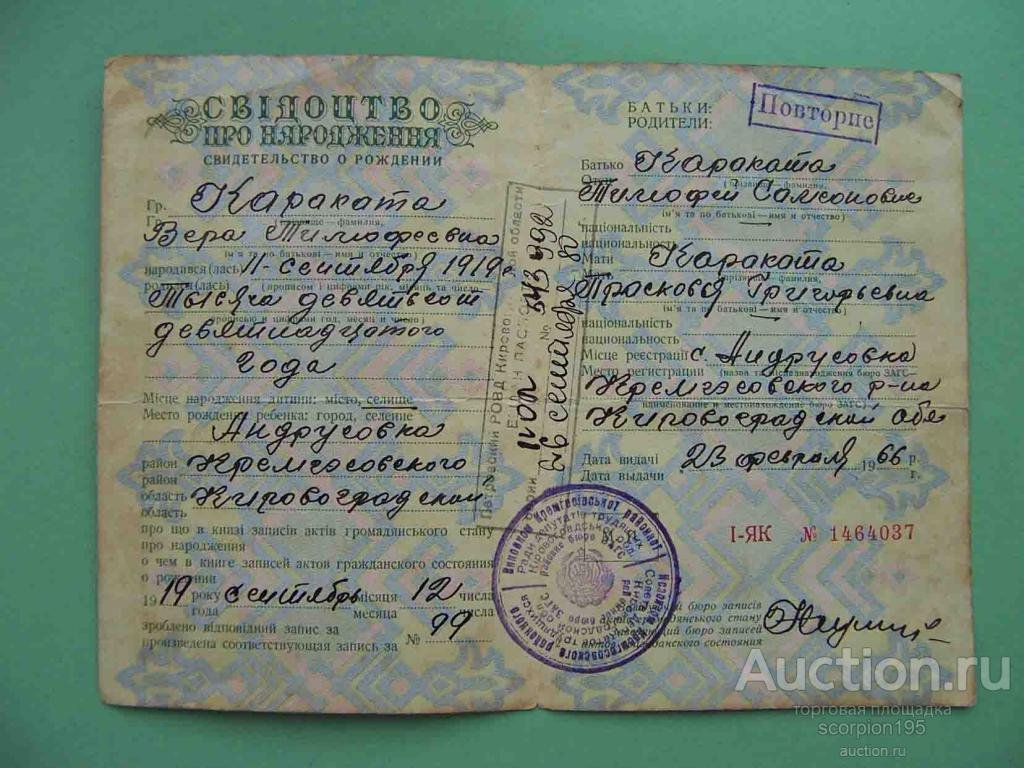 СВІДОЦТВО
ПРО НАРОДЖЕННЯ
СВИДЕТЕЛЬСТВО О РОЖДЕНИИ
Гр. Караката
Гр. (прізвище — фамилия,
Вера Тимофеевна
ім'я та по батькові — имя и отчество)
народився (лась) 11 - сентября 1919
родился (лась) (прописом і цифрами рік, місяць та число
Тысяча девятьсот
прописью и цифрами год, месяц и число)
девятнадцатого
года
Місце народження дитини: місто, селище
Место рождения ребенка: город, селение
Андрусовка
район Кремгэсовского
район
область Кировоградской
область
про що в книзі записів актів громадянського стану
про народження
о чем в книге записей актов гражданского состояния
о рождении
1919 року сентябрь місяця 12 числа
года месяца числа
зроблено відповідний запис за
произведена соответствующая запись за № 99
БАТЬКИ:
РОДИТЕЛИ:
Повторне
Батько Караката
Отец (прізвище — фамилия,
Тимофей Самсонович
(ім'я та по батькові — имя и отчество)
національність
национальность
Мати Караката
Мать (прізвище — фамилия,
Прасковья Григорьевна
(ім'я та по батькові — имя и отчество)
національність
национальность
Місце реєстрації с. Андрусовка
Место регистрации (назва та місцезнаходження бюро ЗАГС—
Кремгэсовского р-на
наименование и местонахождение бюро ЗАГС)
Кировоградской обл
Дата видачі 23 февраля 1966 р.
Дата выдачи г.
І-ЯК № 1464037
М. П.
бюро записів
громадянського стану
бюро записей
актов гражданского состояния
Петровский РОВД Кировоградской области
ПАСПОРТ
II-ОЛ № 543
26 сентября 80
Виконком Кремгесівської районної
Ради депутатів трудящих
Кіровоградської
районне бюро ЗАГС
Исполком Кремгэсовского районного
Auction.ru
торговая площадка
scorpion195
auction.ru